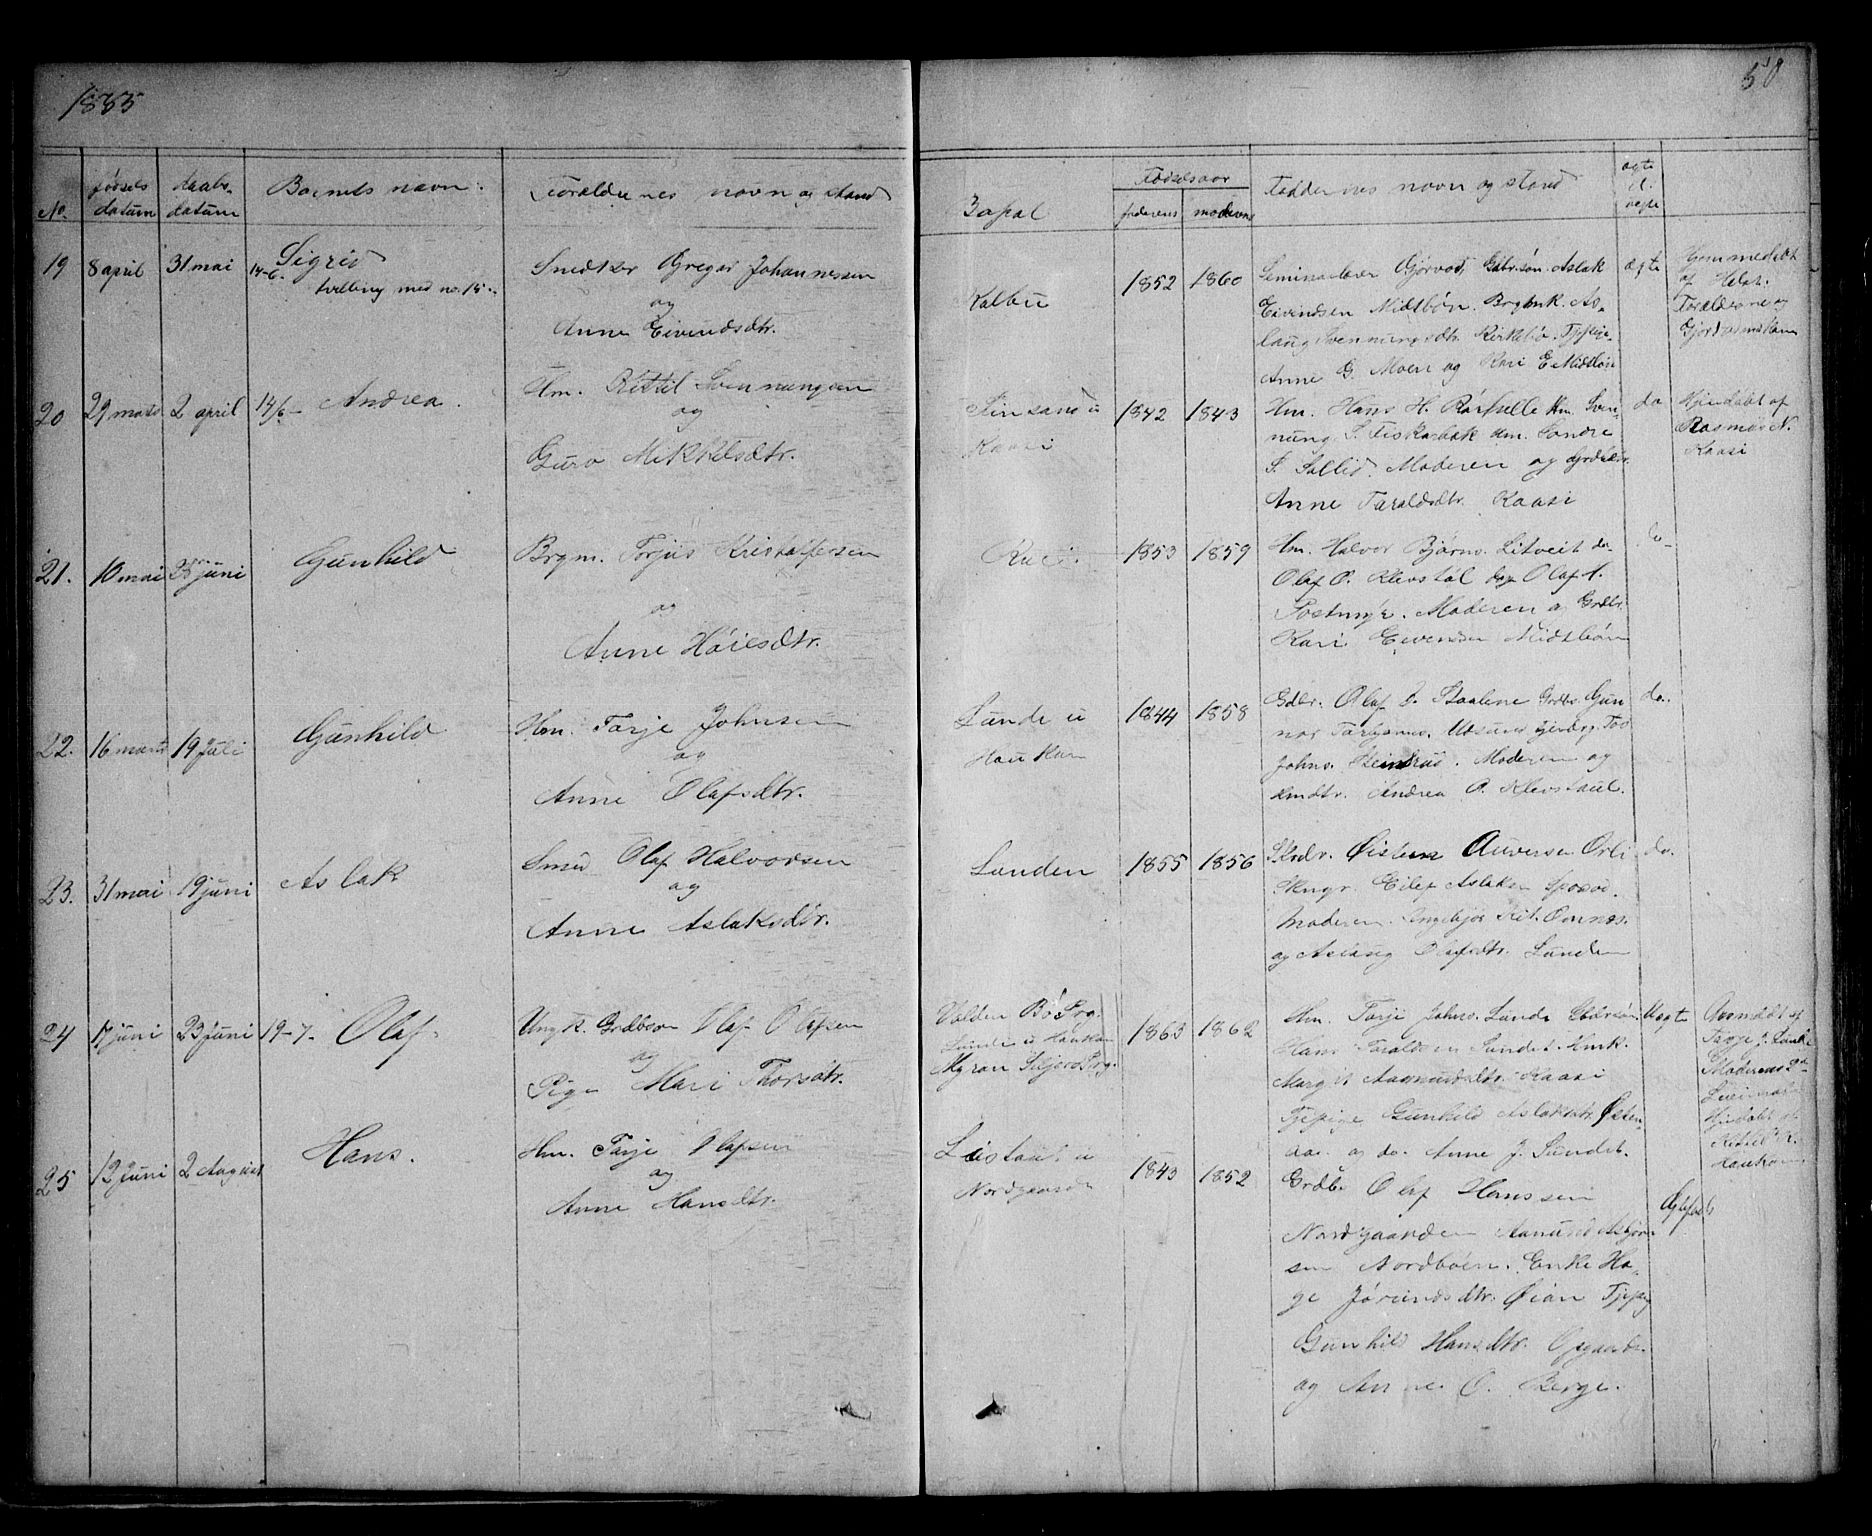 1885
50
No.
fødsels datum
daabs- datum
Barnets navn:
Forældrenes navn og stand
Bopæl
Fødselsaar
faderens
moderens
Faddernes navn og stand
ægte el. uegte
19
8 april
31 mai
14-6-
Sigrid
tvilling med no. 15.
Snedker Gregar Johannessen
og
Anne Eivindsdtr.
Kalbu
1852
1860
Seminarlærer Gjørvod, Gdbrsøn Aslak
Eivindsen Midtbøn. Brgmk. As-
laug Svenningsdtr. Kirkebø. Tjpige
Anne G. Moen og Kari E. Midtbøn
ægte
Hjemmedøbt
af Helst.
Forældrene og
20
29 marts
2 april
14/6-
Andrea.
Hm. Kittil Svennungsen
og
Guro Mikkelsdtr.
Kaasi
1842
1843
Hm. Hans H. Hm. Sven-
nung S. Fiskarbæk Hm. Sondre
S. Sollid. Moderen og
Anne Taraldsdtr. Kaasi
do
Hjemdøbt af
Rasmus N.
Kaasi
21.
10 mai
25 juni
Gunhild
Brgm. Torjus Kristoffersen
og
Anne Høiesdtr.
1853
1859
Hm. Halvor Bjørns. Litveit do-
Olaf O. Klevstøl do Olaf
Postmyr. Moderen og Grdbr.
Kari Eivindsd. Midtbøn
do-
22.
16 marts
19 Juli
Gunhild
Hm. Tarje Johnsen
og
Anne Olafsdtr.
Lunde u
Haukom
1844
1858
Gdbr. Olaf Staalene Grdbr. Gun
nar
Johns. Moderen og
Hmdtr. Andrea O. Klevstaul.
do.
23.
31 mai
19 juni
Aslak
Smed Olaf Halvorsen
og
Anne Aslaksdtr.
Lunden
1855
1856
Øisten Auversen Orli
Ungk. Eilef Aslaksen
Moderen. Ingebjør Kit. Omnæs.
og Aslaug Olafsdtr. Lunden
do.
24
17 juni
23 Juni
19-7-
Olaf.
Ungk. Grdbsøn Olaf Olafsen
og
Pige Mari Thorsdtr.
Volden Bø Prg.
Lunde u Haukom
Myran Siljord Prg.
1863
1862
Hm. Tarje Johns. Lunde
Hans Taraldsen Sundet. Hmk.
Margit Aamundsdtr. Kaasi
Tjpige Gunhild Aslaksdtr. Østen-
aa. og do. Anne J. Sundet.
Uægte
Anmeldt af
Tarje J. Lunde
Moderens 2d
Leiermaal
Hjemdøbt af
Kittil K.
Haukom
25
12 juni
2 August
Hans.
Hm. Tarje Olafsen
og
Anne Hansdtr.
Nordgaarden
1843
1852
Grdbr. Olaf Hanssen
Nordgaarden Aamund Asbjørn
sen Nordbøen. Enke Ha-
ge Jørundsdtr. Øian Tjpig
Gunhild Hansdtr. Opgaarden
og Anne O. Berge.